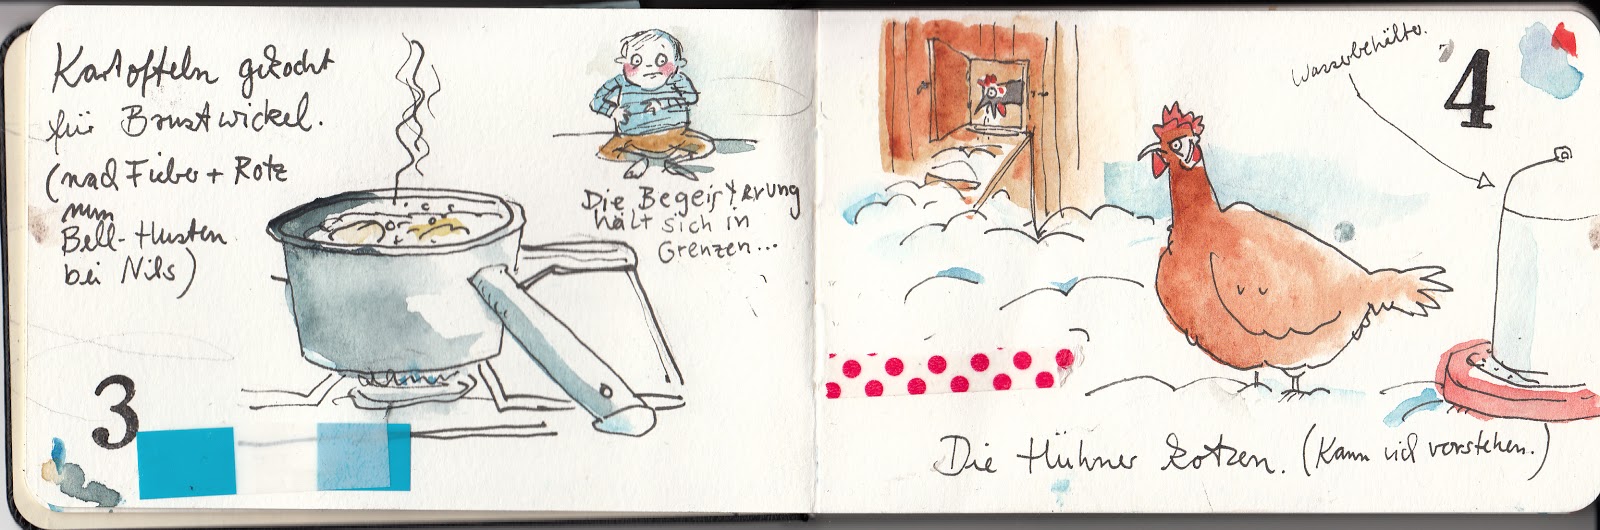 Kartoffeln gekocht
für Brustwickel.
(nach Fieber + Rotz
nun
Bell-Husten
bei Nils)
3
Die Begeisterung
hält sich in
Grenzen...
Wasserbehälter.
4
Die Hühner kotzen. (Kann ich verstehen.)